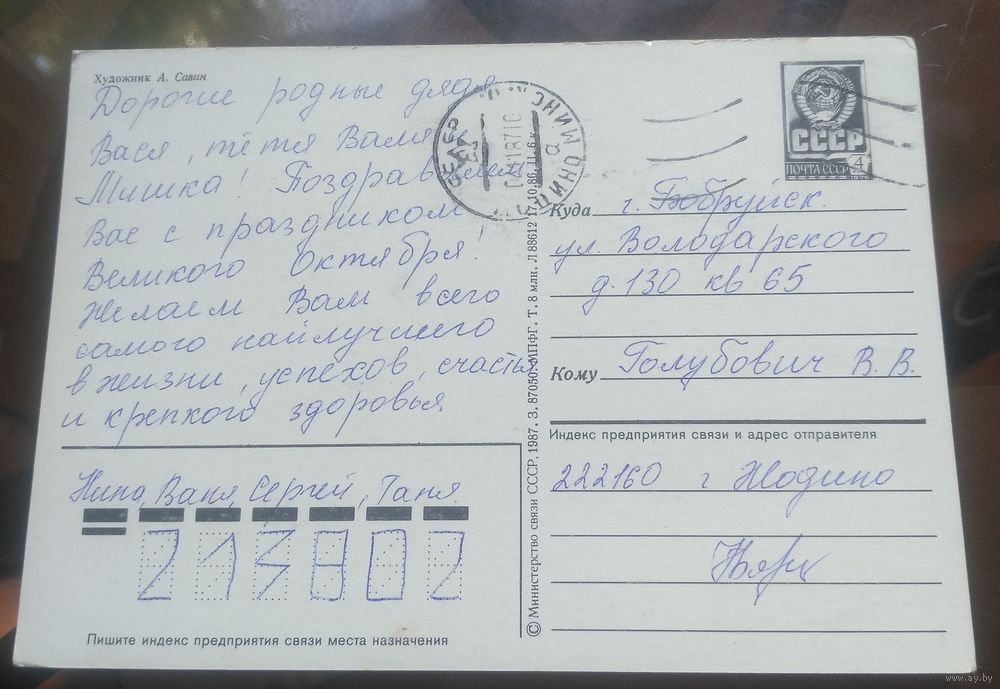 Художник А. Савин
Дорогие родные дядя
Вася, тётя Валя и
Мишка! Поздравляем
Вас с праздником
Великого Октября!
Желаем Вам всего
самого найлучшего
в жизни, успехов, счастья
и крепкого здоровья
Нина, Ваня, Сергей, Таня.
213802
Пишите индекс предприятия связи места назначения
© Министерство связи СССР, 1987. З. 87050. МПФГ. Т. 8 млн. Л 88612 17.10.86. П. 6 к.
СССР
ПОЧТА СССР 4
1976
Куда г. Бобруйск.
ул. Володарского
д. 130 кв 65
Кому Голубович В. В.
Индекс предприятия связи и адрес отправителя
222160 г Жодино
www.ay.by